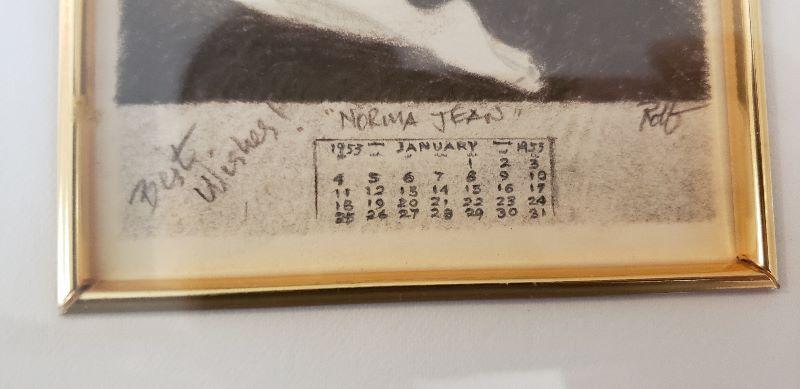 "NORMA JEAN"
Rolf
Best
Wishes!
1953 — JANUARY — 1953
1 2 3
4 5 6 7 8 9 10
11 12 13 14 15 16 17
18 19 20 21 22 23 24
25 26 27 28 29 30 31